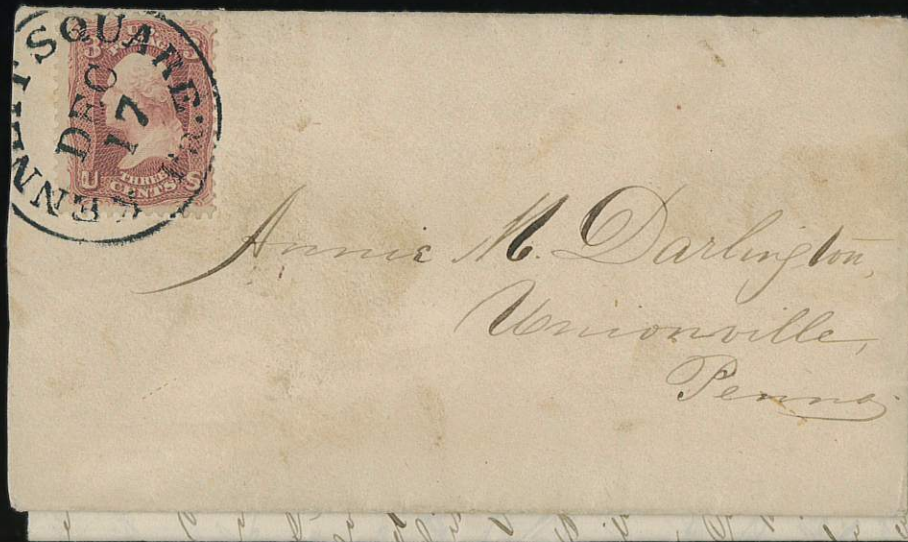 KENNETT SQUARE. Pa.
DEC
17
3 3
THREE
CENTS
U S
Annie M. Darlington,
Unionville,
Penna.